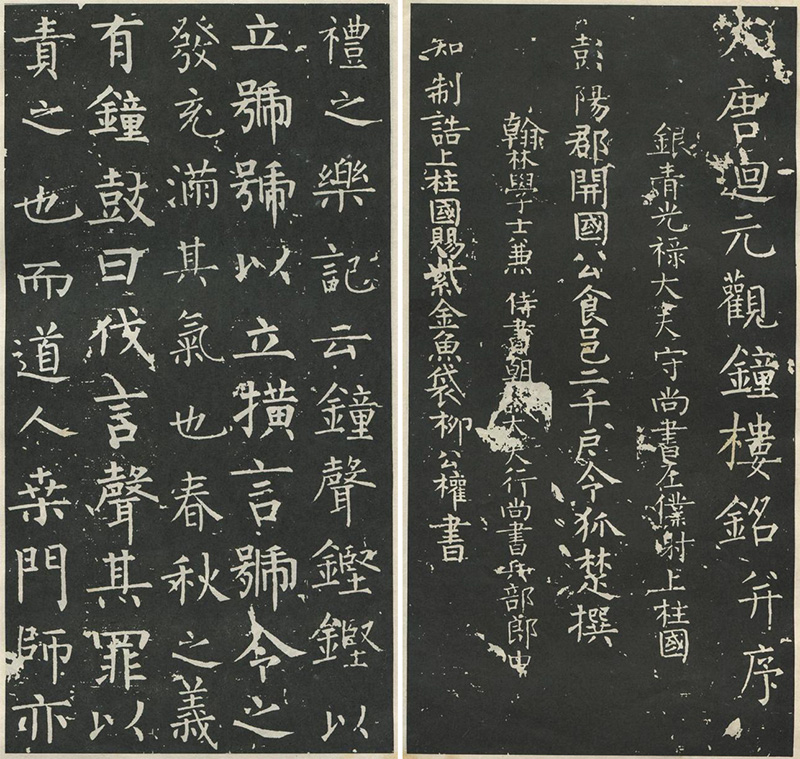 大唐迴元觀鐘樓銘并序
銀青光祿大夫守尚書左僕射上柱國
彭陽郡開國公食邑二千戶令狐楚撰
翰林學士兼侍書朝議大夫行尚書兵部郎中
知制誥上柱國賜紫金魚袋柳公權書
禮之樂記云鐘聲鏗鏗以
立號號以立橫言號令之
發充滿其氣也春秋之義
有鐘鼓曰伐言聲其罪以
責之也而道人桑門師亦